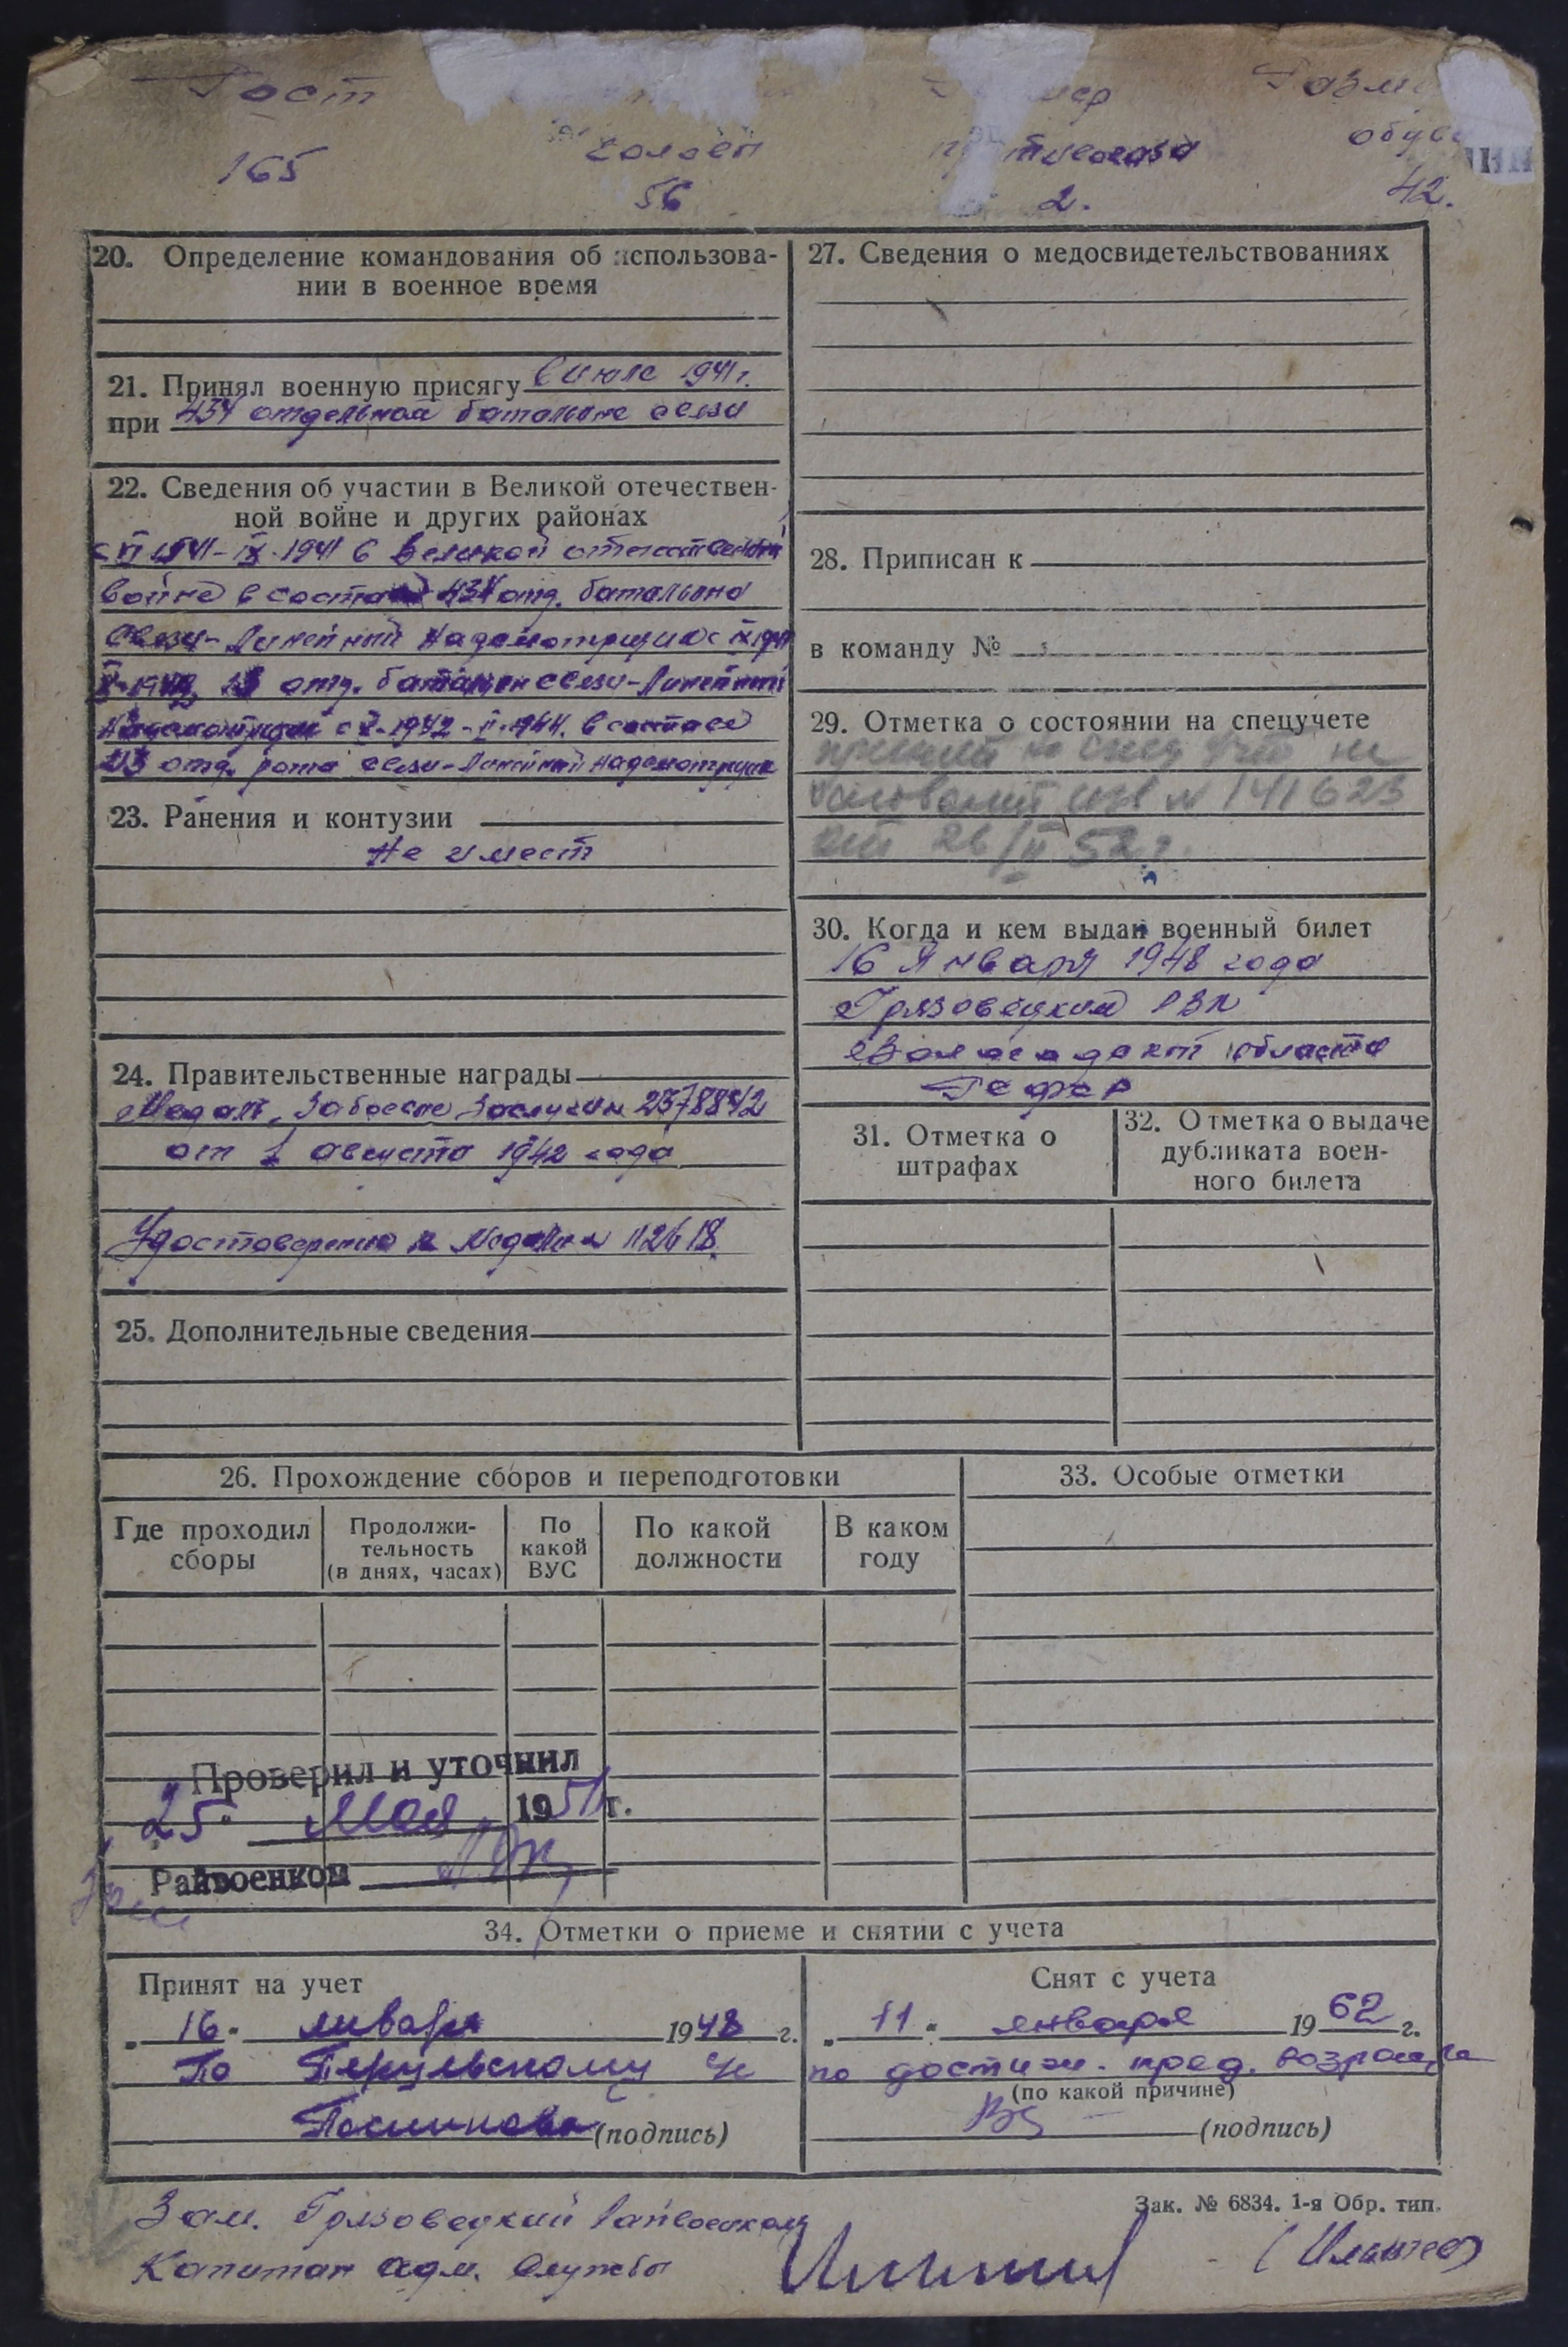 Рост
165
голов
56
противогаза
2.
обув
42.
20. Определение командования об использова-
нии в военное время
21. Принял военную присягу в июле 1941 г.
при 434 отдельном батальоне связи
22. Сведения об участии в Великой отечествен-
ной войне и других районах
1941-IX-1941 в Великой отечественной
войне в составе 434 отд. батальона
связи-Линейный надсмотрщик с
отд. батальон связи-Линейный
надсмотрщик с X-1942-V-1944. в составе
213 отд. рота связи-Линейный надсмотрщик
23. Ранения и контузии
не имеет
24. Правительственные награды
Медаль "За боевые заслуги" 2378842
от 1 августа 1942 года
Удостоверение к медали N 112618.
25. Дополнительные сведения
26. Прохождение сборов и переподготовки
Где проходил сборы
Продолжи-тельность (в днях, часах)
По какой ВУС
По какой должности
В каком году
Проверил и уточнил
"25" Мая 1951 г.
Райвоенком
27. Сведения о медосвидетельствованиях
28. Приписан к
в команду №
29. Отметка о состоянии на спецучете
принят на спец учет на
основании изв N 141623
от 26/II 52 г.
30. Когда и кем выдан военный билет
16 Января 1948 года
Грязовецким РВК
Вологодской области
РСФСР
31. Отметка о
штрафах
32. Отметка о выдаче
дубликата воен-
ного билета
33. Особые отметки
34. Отметки о приеме и снятии с учета
Принят на учет
"16" января 1948 г.
По
(подпись)
Снят с учета
"11" января 1962 г.
по достиж. пред. возраста
(по какой причине)
(подпись)
Зак. № 6834. 1-я Обр. тип.
Зам. Грязовецкий Райвоенком
Капитан адм. службы